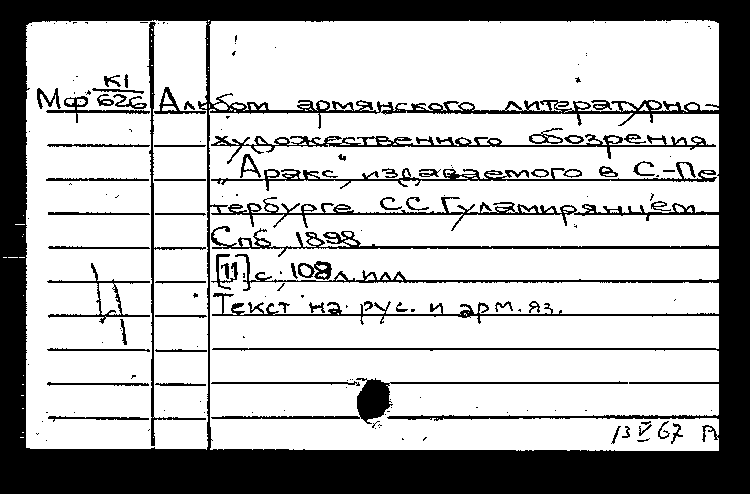 Мф К1/626 Альбом армянского литературно-
художественного обозрения
„Аракс", издаваемого в С.-Пе
тербурге С.С. Гуламирянцем.
Спб, 1898.
[11] с., 108 л. илл
Текст на рус. и арм. яз.
13 V 67